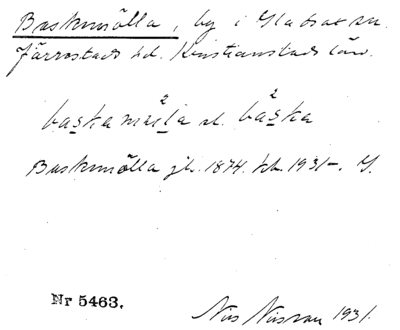 Baskemölla, by i Gladsax sn.
Järrestads hd. Kristianstads län.
baskamøla el. båska
Baskemölla jb. 1874. tk. 1931–. G.
Nr 5463.
Nils Nilsson 1931.